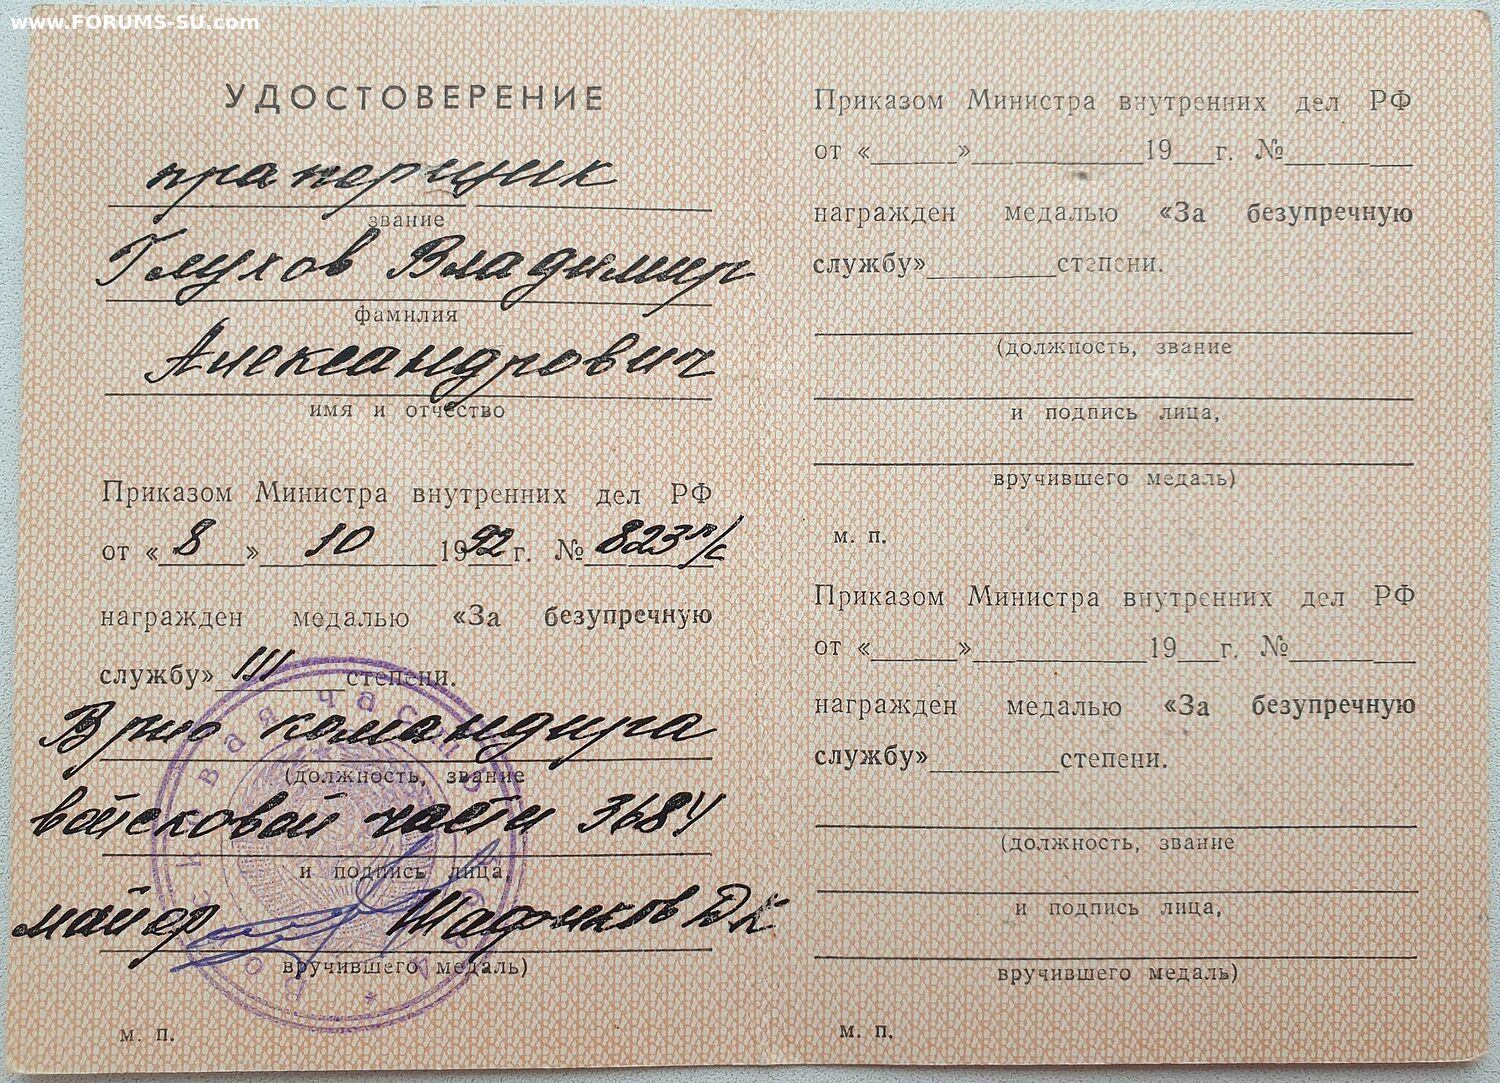 www.FORUMS-SU.com
УДОСТОВЕРЕНИЕ
прапорщик
звание
Глухов Владимир
фамилия
Александрович
имя и отчество
Приказом Министра внутренних дел РФ
от « 8 » 10 1992 г. № 823 л/с
награжден медалью «За безупречную
службу» III степени.
Врио командира
(должность, звание
войсковой части 3684
и подпись лица,
майор Шафиков ДК
вручившего медаль)
м. п.
Войсковая часть
Приказом Министра внутренних дел РФ
от «______»____________19___г. №_________
награжден медалью «За безупречную
службу»_________степени.
(должность, звание
и подпись лица,
вручившего медаль)
м. п.
Приказом Министра внутренних дел РФ
от «______»____________19___г. №_________
награжден медалью «За безупречную
службу»_________степени.
(должность, звание
и подпись лица,
вручившего медаль)
м. п.